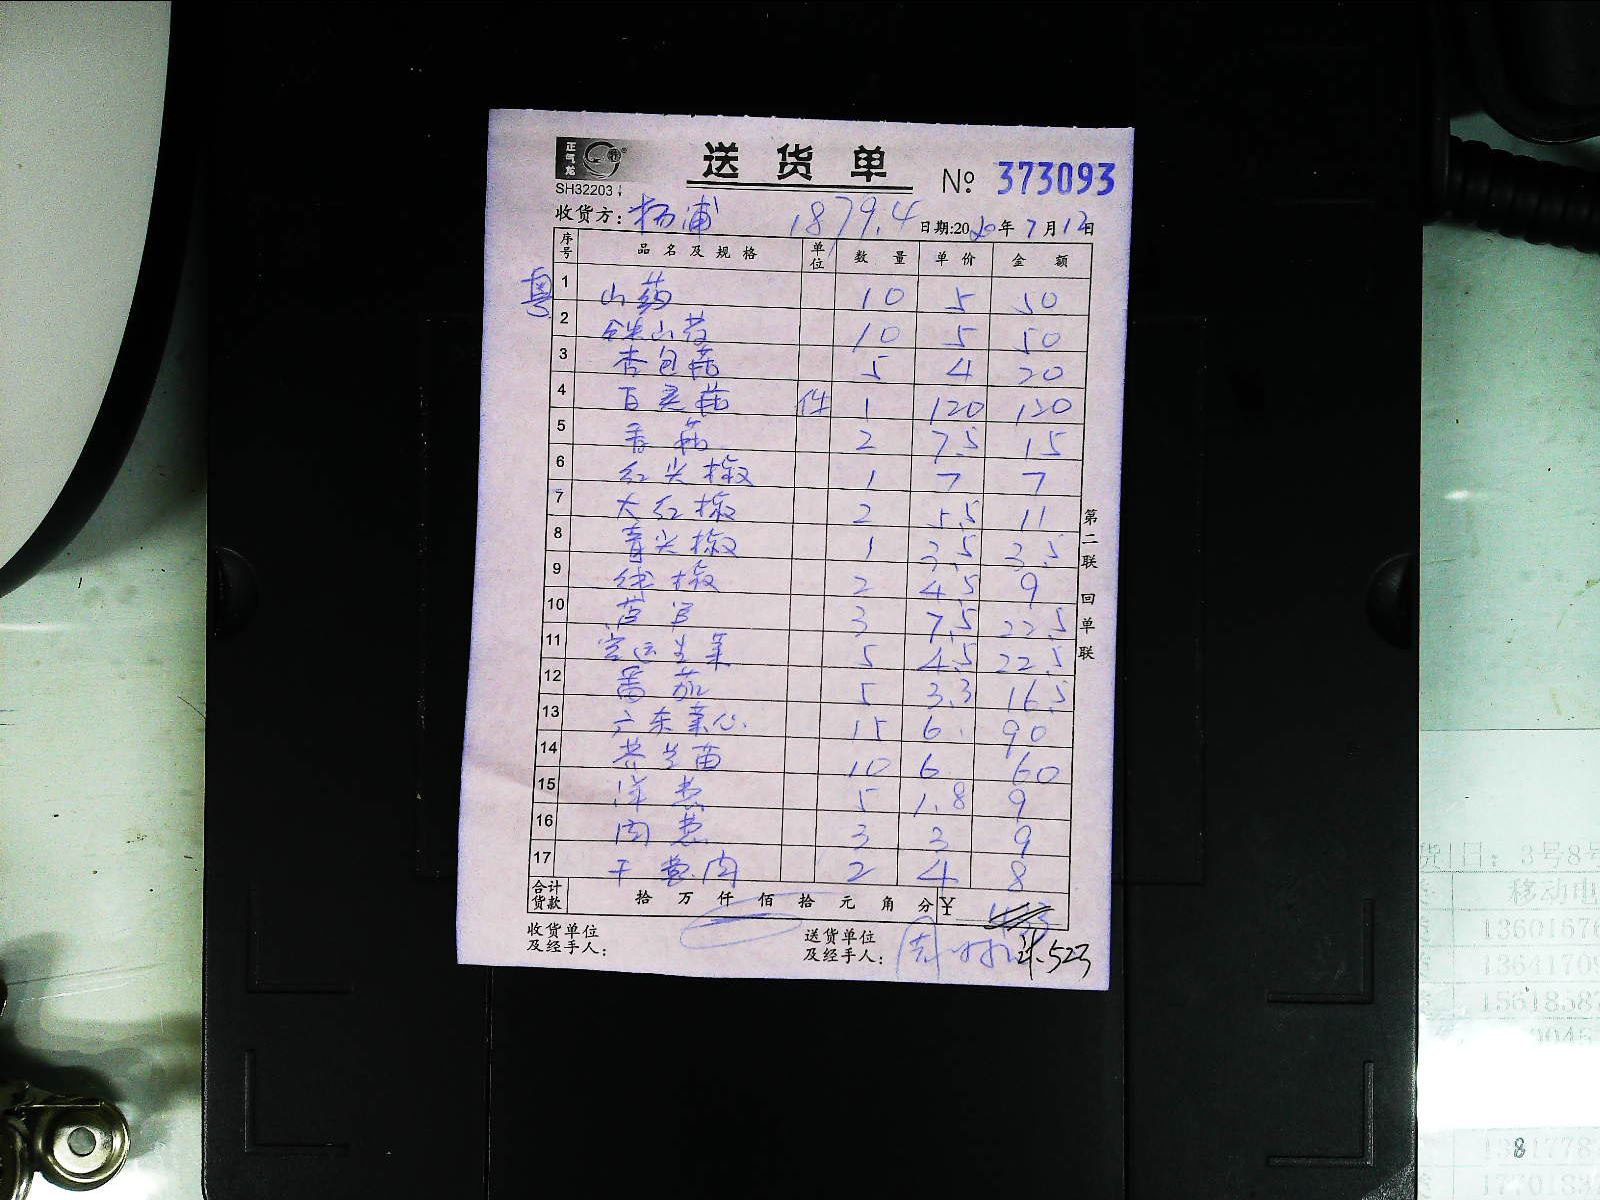 正气龙
送货单
№ 373093
SH32203
收货方: 杨浦 1879.4 日期:2020年7月12日
序号 品名及规格 单位 数量 单价 金额
粤
1 山药 10 5 50
2 铁山药 10 5 50
3 杏包菇 5 4 20
4 百灵菇 件 1 120 120
5 香菇 2 7.5 15
6 红尖椒 1 7 7
7 大红椒 2 5.5 11
8 青尖椒 1 3.5 3.5
9 线椒 2 4.5 9
10 芦笋 3 7.5 22.5
11 空运生菜 5 4.5 22.5
12 番茄 5 3.3 16.5
13 广东菜心 15 6 90
14 芥兰苗 10 6 60
15 洋葱 5 1.8 9
16 肉葱 3 3 9
17 干葱肉 2 4 8
合计货款 拾 万 仟 佰 拾 元 角 分 ¥
收货单位及经手人:
送货单位及经手人:
523
第二联 回单联
货日: 3号8号
移动电